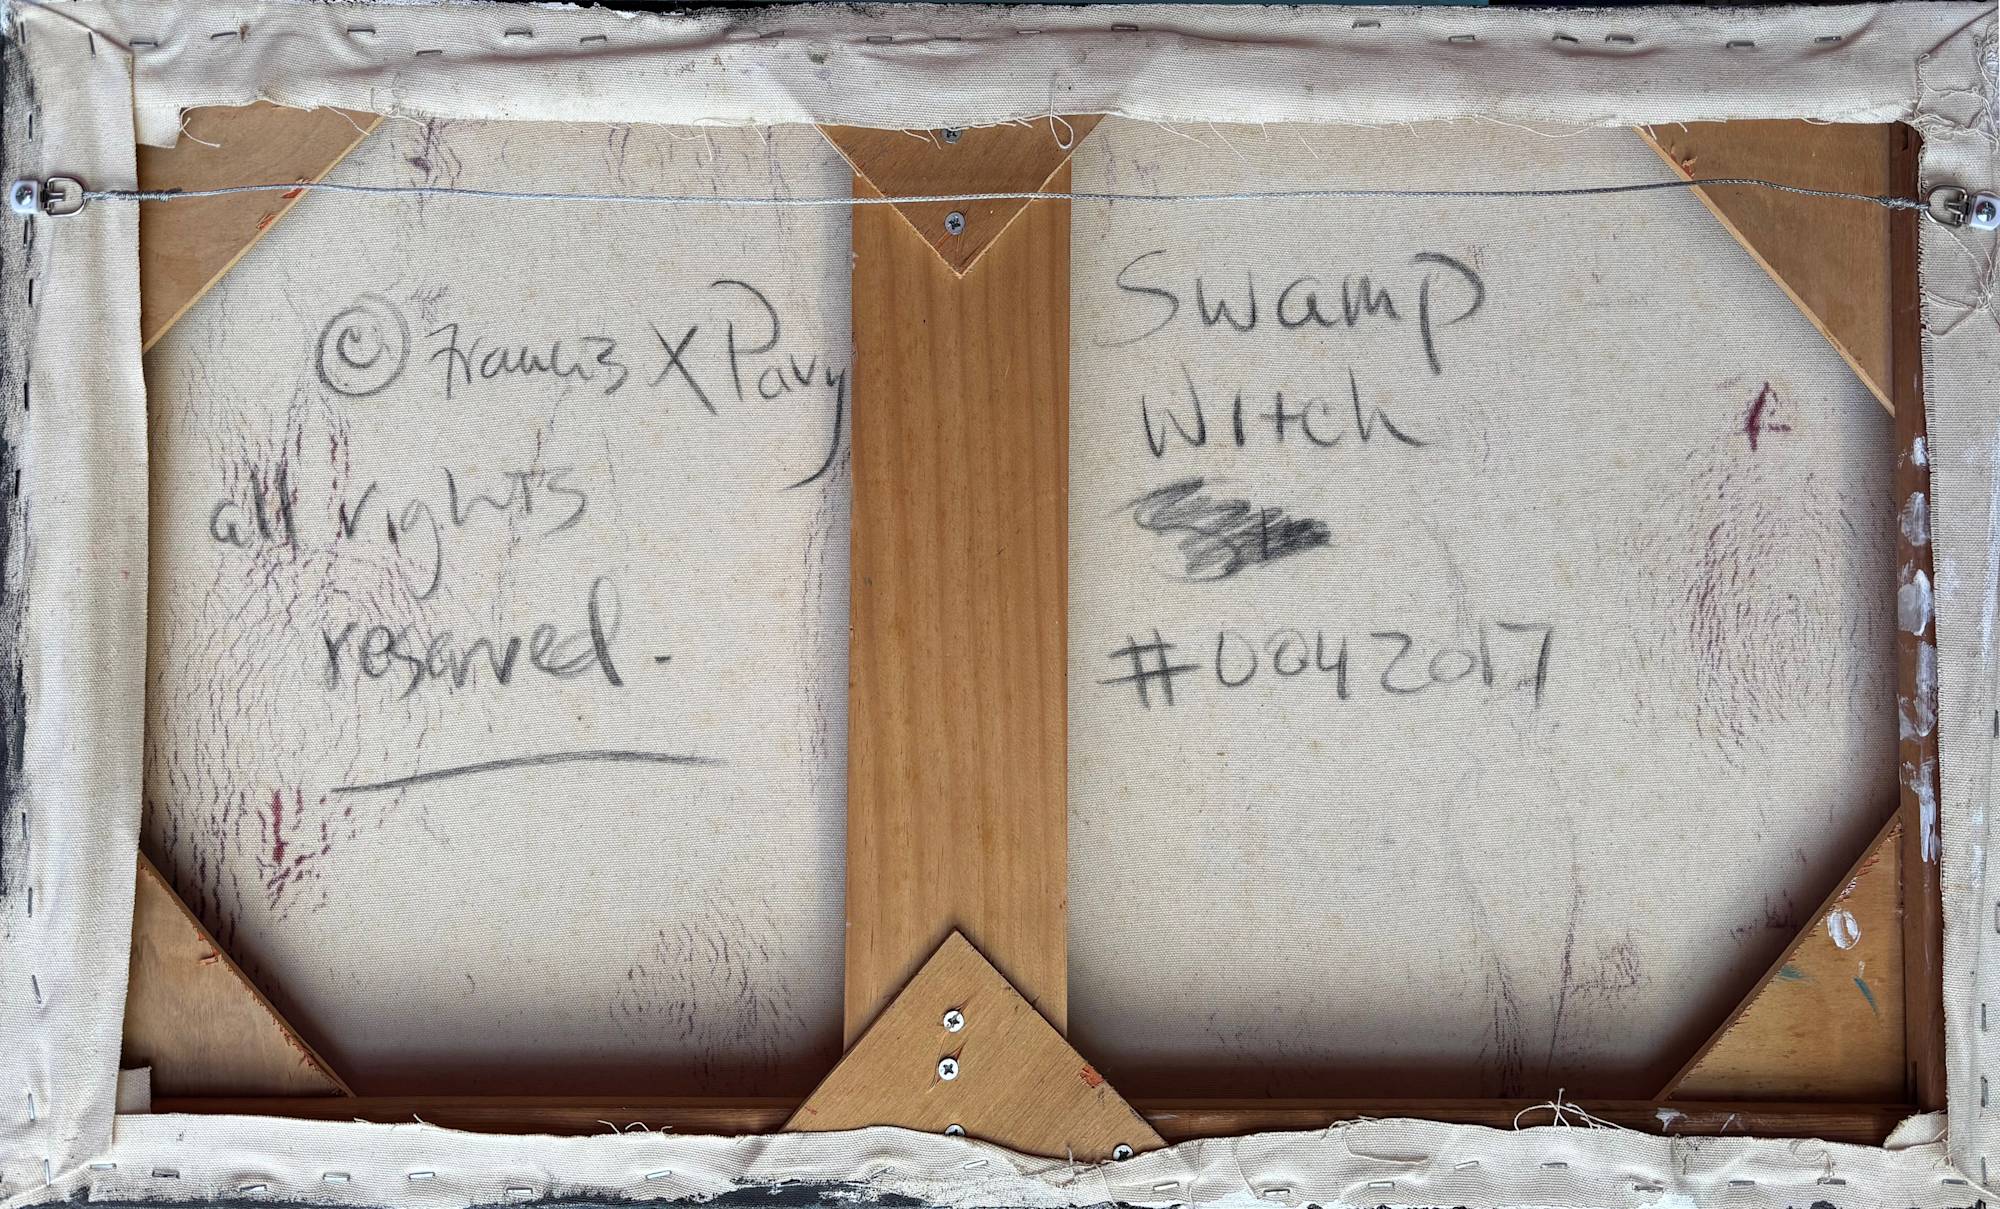 © Francis X Pavy
all rights
reserved.
Swamp
Witch
#0042017